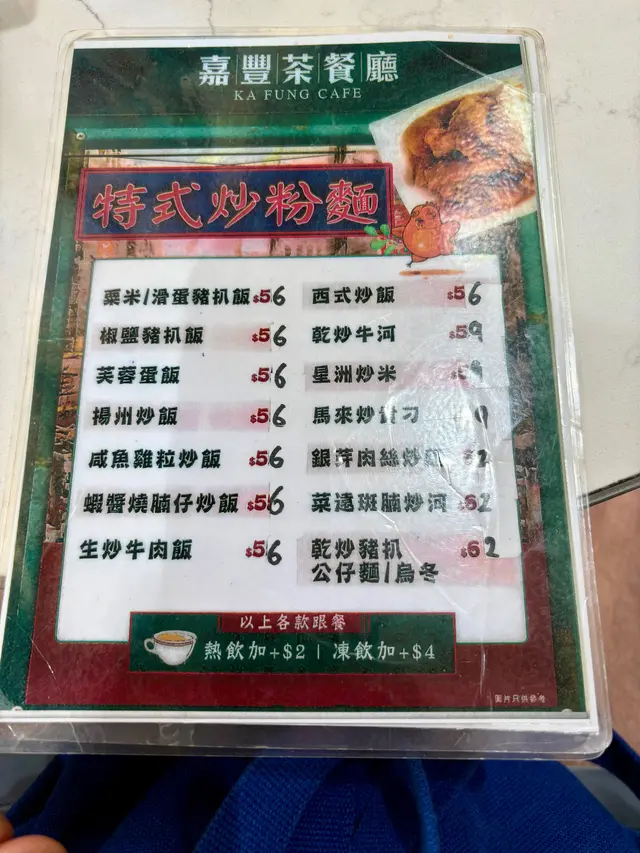 嘉豐茶餐廳
KA FUNG CAFE
特式炒粉麵
粟米/滑蛋豬扒飯 $56
椒鹽豬扒飯 $56
芙蓉蛋飯 $56
揚州炒飯 $56
咸魚雞粒炒飯 $56
蝦醬燒腩仔炒飯 $56
生炒牛肉飯 $56
西式炒飯 $56
乾炒牛河 $59
星洲炒米 $59
馬來炒貴刁
銀芽肉絲炒
菜遠斑腩炒河 $62
乾炒豬扒 $62
公仔麵/烏冬
以上各款跟餐
熱飲加+$2 | 凍飲加+$4
圖片只供參考